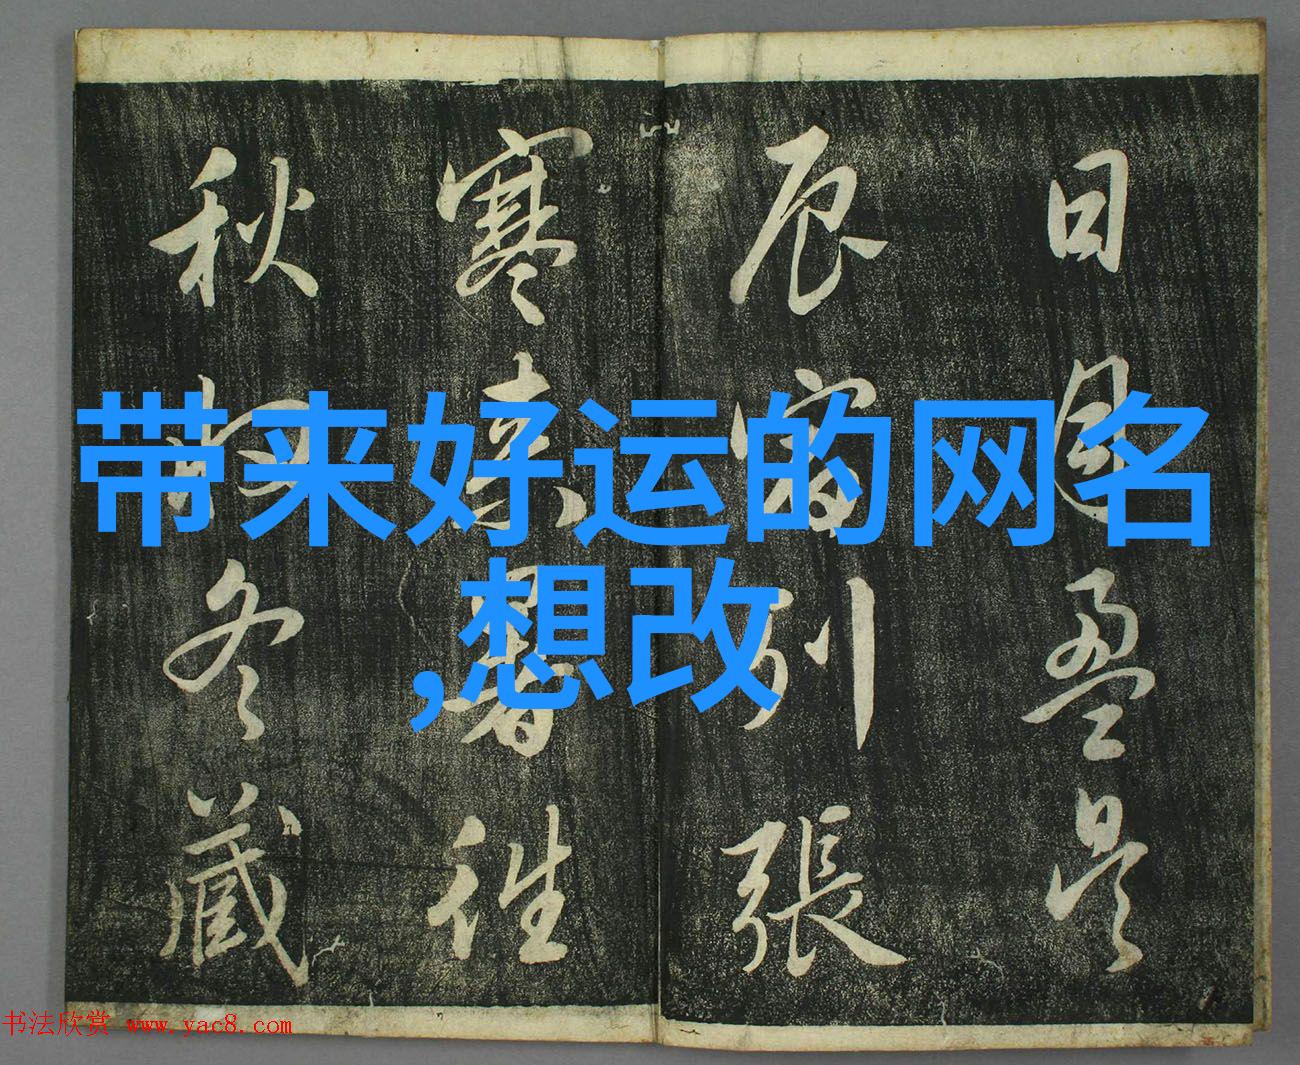 带来好运的网名
,想改
日月盈昃
辰宿列張
寒來暑往
秋收冬藏
书法欣赏 www.yac8.com